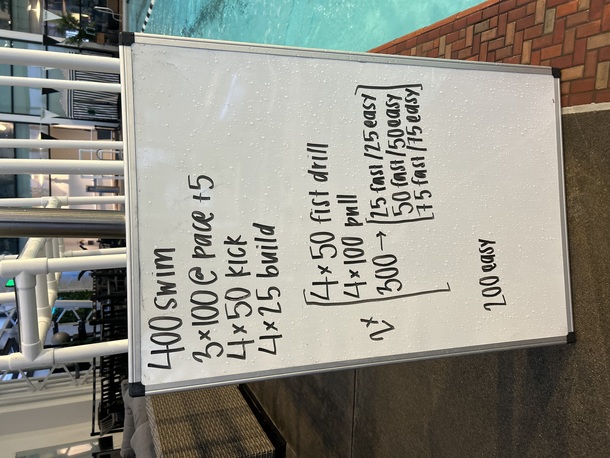 400 swim
3x100 @ pace +5
4x50 kick
4x25 build
4x50 fist drill
4x100 pull
2x 300 → 25 fast/25 easy
50 fast/50 easy
75 fast/75 easy
200 easy